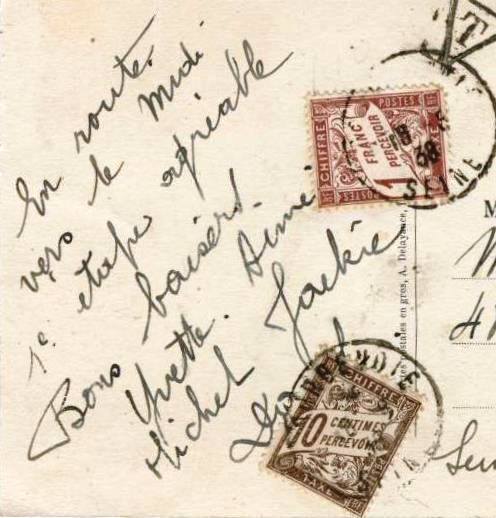 En route
vers le Midi
1e étape agréable
Bons baisers.
Yvette. Aimé
Michel Jackie
T
POSTES
CHIFFRE
1 FRANC
A PERCEVOIR
38
SEINE
cartes postales en gros, A. Delayance,
M
CHIFFRE
10 CENTIMES
A PERCEVOIR
TAXE